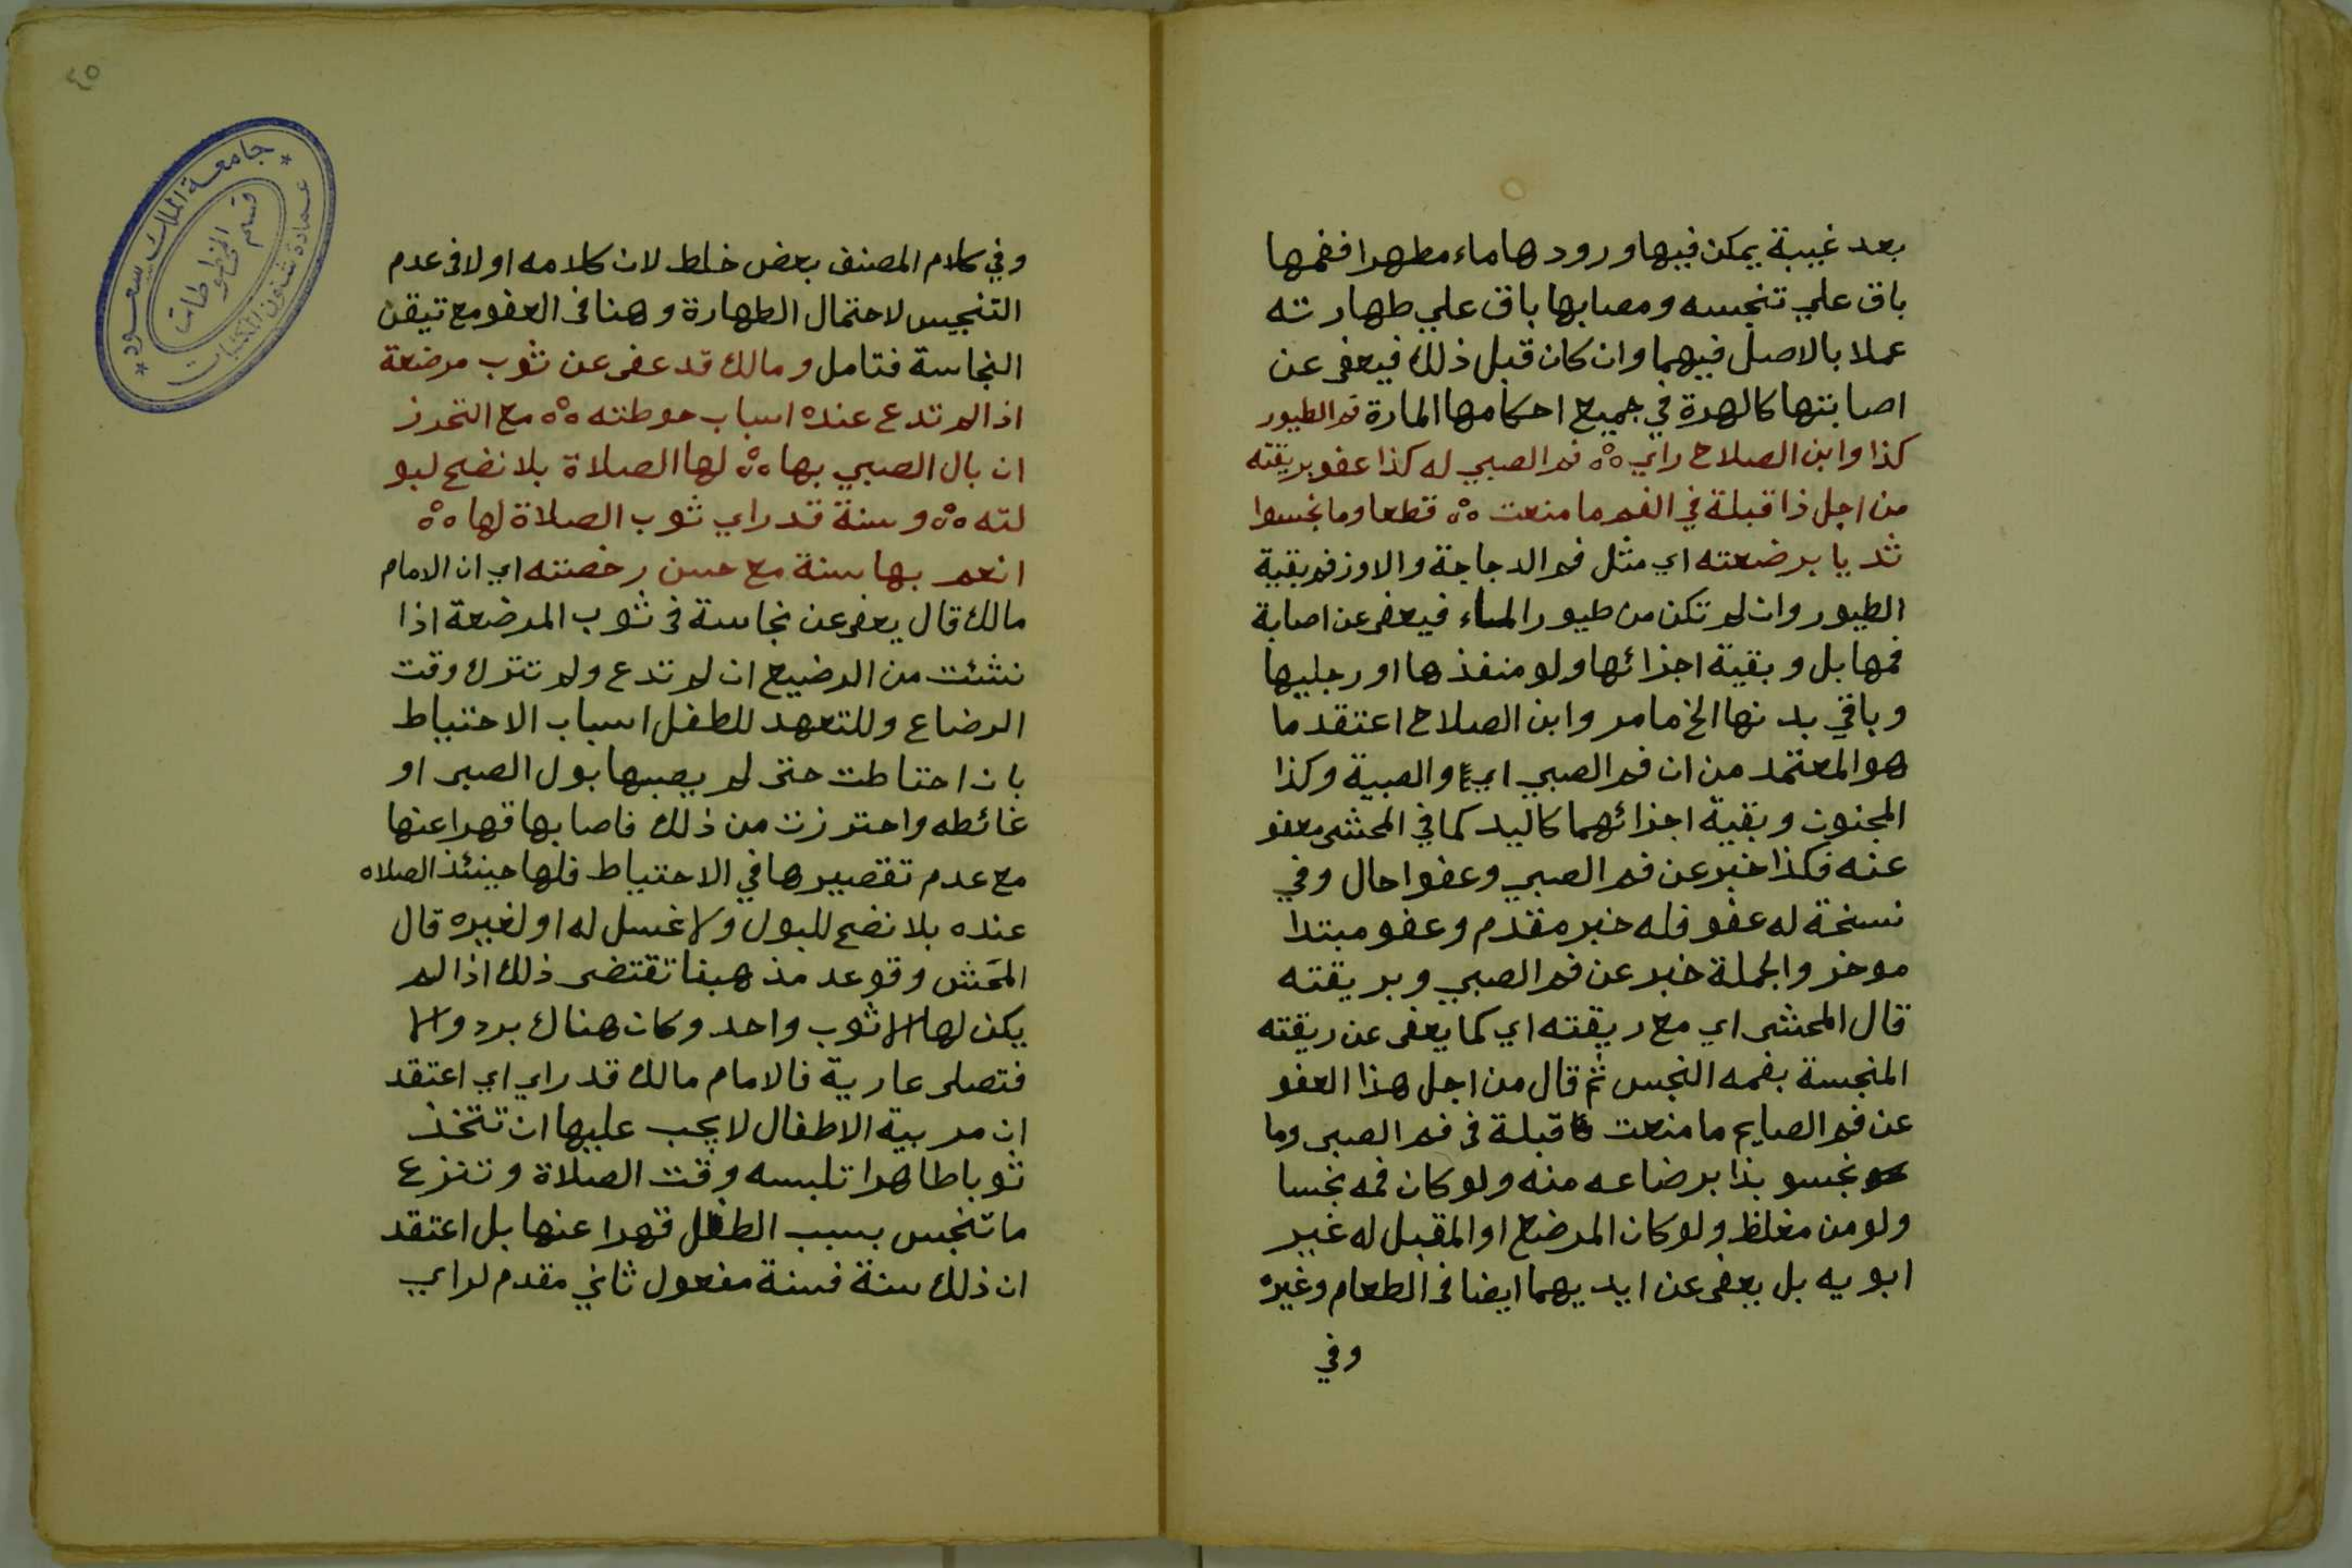 بعد غيبة يمكن فيها ورودها ماء مطهرا ففمها
باق علي تنجسه ومصابها باق علي طهارته
عملا بالاصل فيهما وان كان قبل ذلك فيعفى عن
اصابتها كالهرة في جميع احكامها المارة فم الطيور
كذا وابن الصلاح راي ؞ فم الصبي له كذا عفو بريقته
من اجل ذا قبلة في الفم ما منعت ؞ قطعا وما نجسوا
ثديا برضعته اي مثل فم الدجاجة والاوز فم بقية
الطيور وان لم تكن من طيور الماء فيعفى عن اصابة
فمها بل وبقية اجزائها ولو منفذها او رجليها
وباقي بدنها الخ ما مر وابن الصلاح اعتقد ما
هو المعتمد من ان فم الصبي اي والصبية وكذا
المجنون وبقية اجزائهما كاليد كما في المحشى معفو
عنه فكذا خبر عن فم الصبي وعفوا حال وفي
نسخة له عفو فله خبر مقدم وعفو مبتدا
موخر والجملة خبر عن فم الصبي وبريقته
قال المحشى اي مع ريقته اي كما يعفى عن ريقته
المنجسة بفمه النجس ثم قال من اجل هذا العفو
عن فم الصايم ما منعت قبلة فى فم الصبى وما
نجسو بذا برضاعه منه ولو كان فمه نجسا
ولو من مغلظ ولو كان المرضع او المقبل له غير
ابويه بل يعفى عن ايديهما ايضا فى الطعام وغيره
وفي
٤٥
جامعة الملك سعود
عمادة شئون المكتبات
قسم المخطوطات
وفي كلام المصنف بعض خلط لان كلامه اولا فى عدم
التنجيس لاحتمال الطهارة وهنا فى العفو مع تيقن
النجاسة فتامل ومالك قد عفى عن ثوب مرضعة
اذا لم تدع عنده اسباب حوطته ؞ مع التحرز
ان بال الصبي بها ؞ لها الصلاة بلا نضح لبو
لته ؞ وسنة قد راي ثوب الصلاة لها ؞
انعم بها سنة مع حسن رخصته اي ان الامام
مالك قال يعفى عن نجاسة فى ثوب المرضعة اذا
نشئت من الرضيع ان لم تدع ولم تترك وقت
الرضاع وللتعهد للطفل اسباب الاحتياط
بان احتاطت حتى لم يصبها بول الصبى او
غائطه واحترزت من ذلك فاصابها قهرا عنها
مع عدم تقصيرها في الاحتياط فلها حينئذ الصلاه
عنده بلا نضح للبول ولا غسل له او لغيره قال
المحشى وقوعد مذهبنا تقتضى ذلك اذا لم
يكن لها الا ثوب واحد وكان هناك برد والا
فتصلى عارية فالامام مالك قد راي اي اعتقد
ان مربية الاطفال لا يجب عليها ان تتخذ
ثوبا طاهرا تلبسه وقت الصلاة وتنزع
ما تنجس بسبب الطفل قهرا عنها بل اعتقد
ان ذلك سنة فسنة مفعول ثاني مقدم لراي